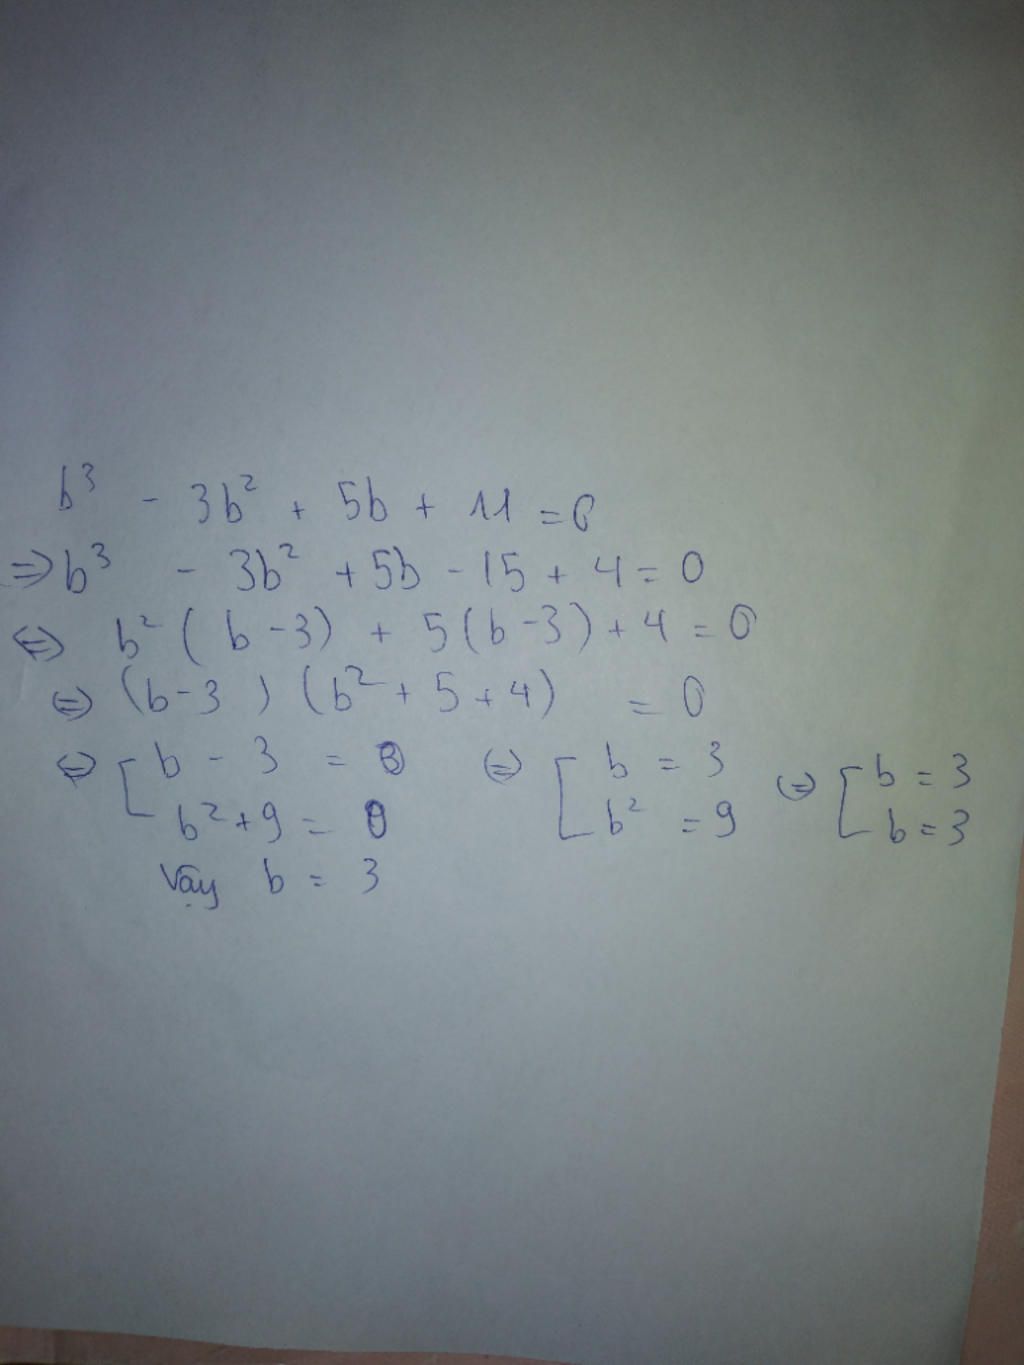 b³ - 3b² + 5b + 11 = 0
=> b³ - 3b² + 5b - 15 + 4 = 0
<=> b² ( b - 3) + 5 ( b - 3) + 4 = 0
<=> (b - 3 ) ( b² + 5 + 4) = 0
<=> [ b - 3 = 0 <=> [ b = 3 <=> [ b = 3
b² + 9 = 0 b² = 9 b = 3
Vậy b = 3